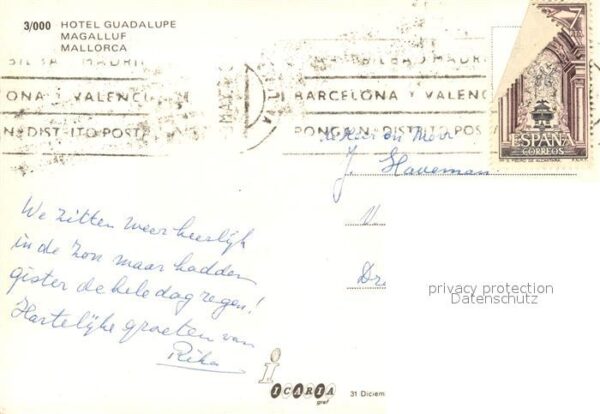 3/000 HOTEL GUADALUPE
MAGALLUF
MALLORCA
BILBAO MADRI
ONA Y VALENCI
N. DISTRITO POSTA
MAY
BARCELONA Y VALENC
PONGAN. DISTRITO POS
7
PTAS
ESPAÑA
CORREOS
Mº S. PEDRO DE ALCANTARA. F.N.M.T.
en Mevr
J. Haveman
V
Dr
We zitten weer heerlijk
in de zon maar hadden
gister de hele dag regen!
Hartelijke groeten van
Rika
privacy protection
Datenschutz
i
ICARIA
graf
31 Diciem